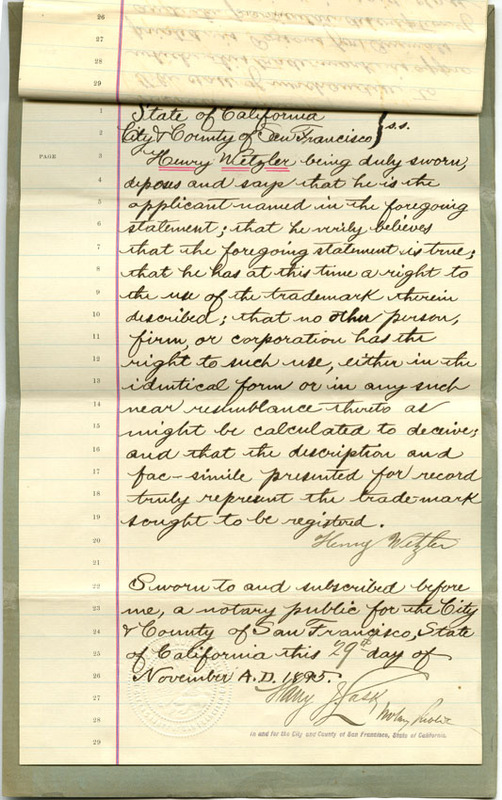 State of California
City & County of San Francisco } s.s.
Henry Wetzler being duly sworn,
deposes and says that he is the
applicant named in the foregoing
statement; that he verily believes
that the foregoing statement is true;
that he has at this time a right to
the use of the trademark therein
described; that no other person,
firm, or corporation has the
right to such use, either in the
identical form or in any such
near resemblance thereto as
might be calculated to deceive;
and that the description and
fac-simile presented for record
truly represent the trade-mark
sought to be registered.
Henry Wetzler
Sworn to and subscribed before
me, a notary public for the City
& County of San Francisco, State
of California this 29th day of
November A.D. 1895.
Harry J. Lask
Notary Public
In and for the City and County of San Francisco, State of California.
PAGE
26
27
28
29
1
2
3
4
5
6
7
8
9
10
11
12
13
14
15
16
17
18
19
20
21
22
23
24
25
26
27
28
29